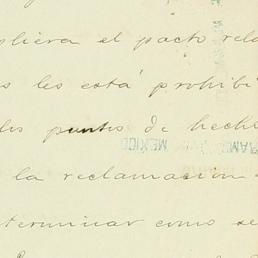 pliera el pacto rela
s les está prohibi
los puntos de hech
la reclamacion
terminar como se